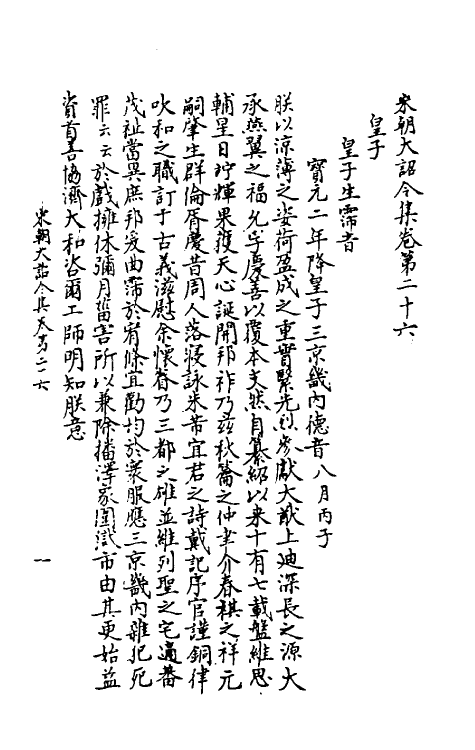 宋朝大詔令集卷第二十六
皇子
皇子生霈音
寶元二年降皇子三京畿內德音八月丙子
朕以涼薄之姿荷盈成之重實繄先烈參猷大猷上廸深長之源大
承燕翼之福允孚慶善以覆本支然自纂紹以來十有七載盤維思
輔星日竚輝果獲天心誕開邦祚乃茲秋籥之仲聿介春祺之祥元
嗣肇生群倫胥慶昔周人落寢詠朱芾宜君之詩戴記序官謹銅律
吹和之職訂于古義滋慰余懷眷乃三都之雄並維列聖之宅適蕃
茂祉當異庶邦爰曲霈於宥條且勸均於衆服應三京畿內雜犯死
罪云云於戲擁休彌月菑害所以兼除播澤家圜獄市由其更始益
資首善協濟大和咨爾工師明知朕意
宋朝大詔令集卷第二十六
一